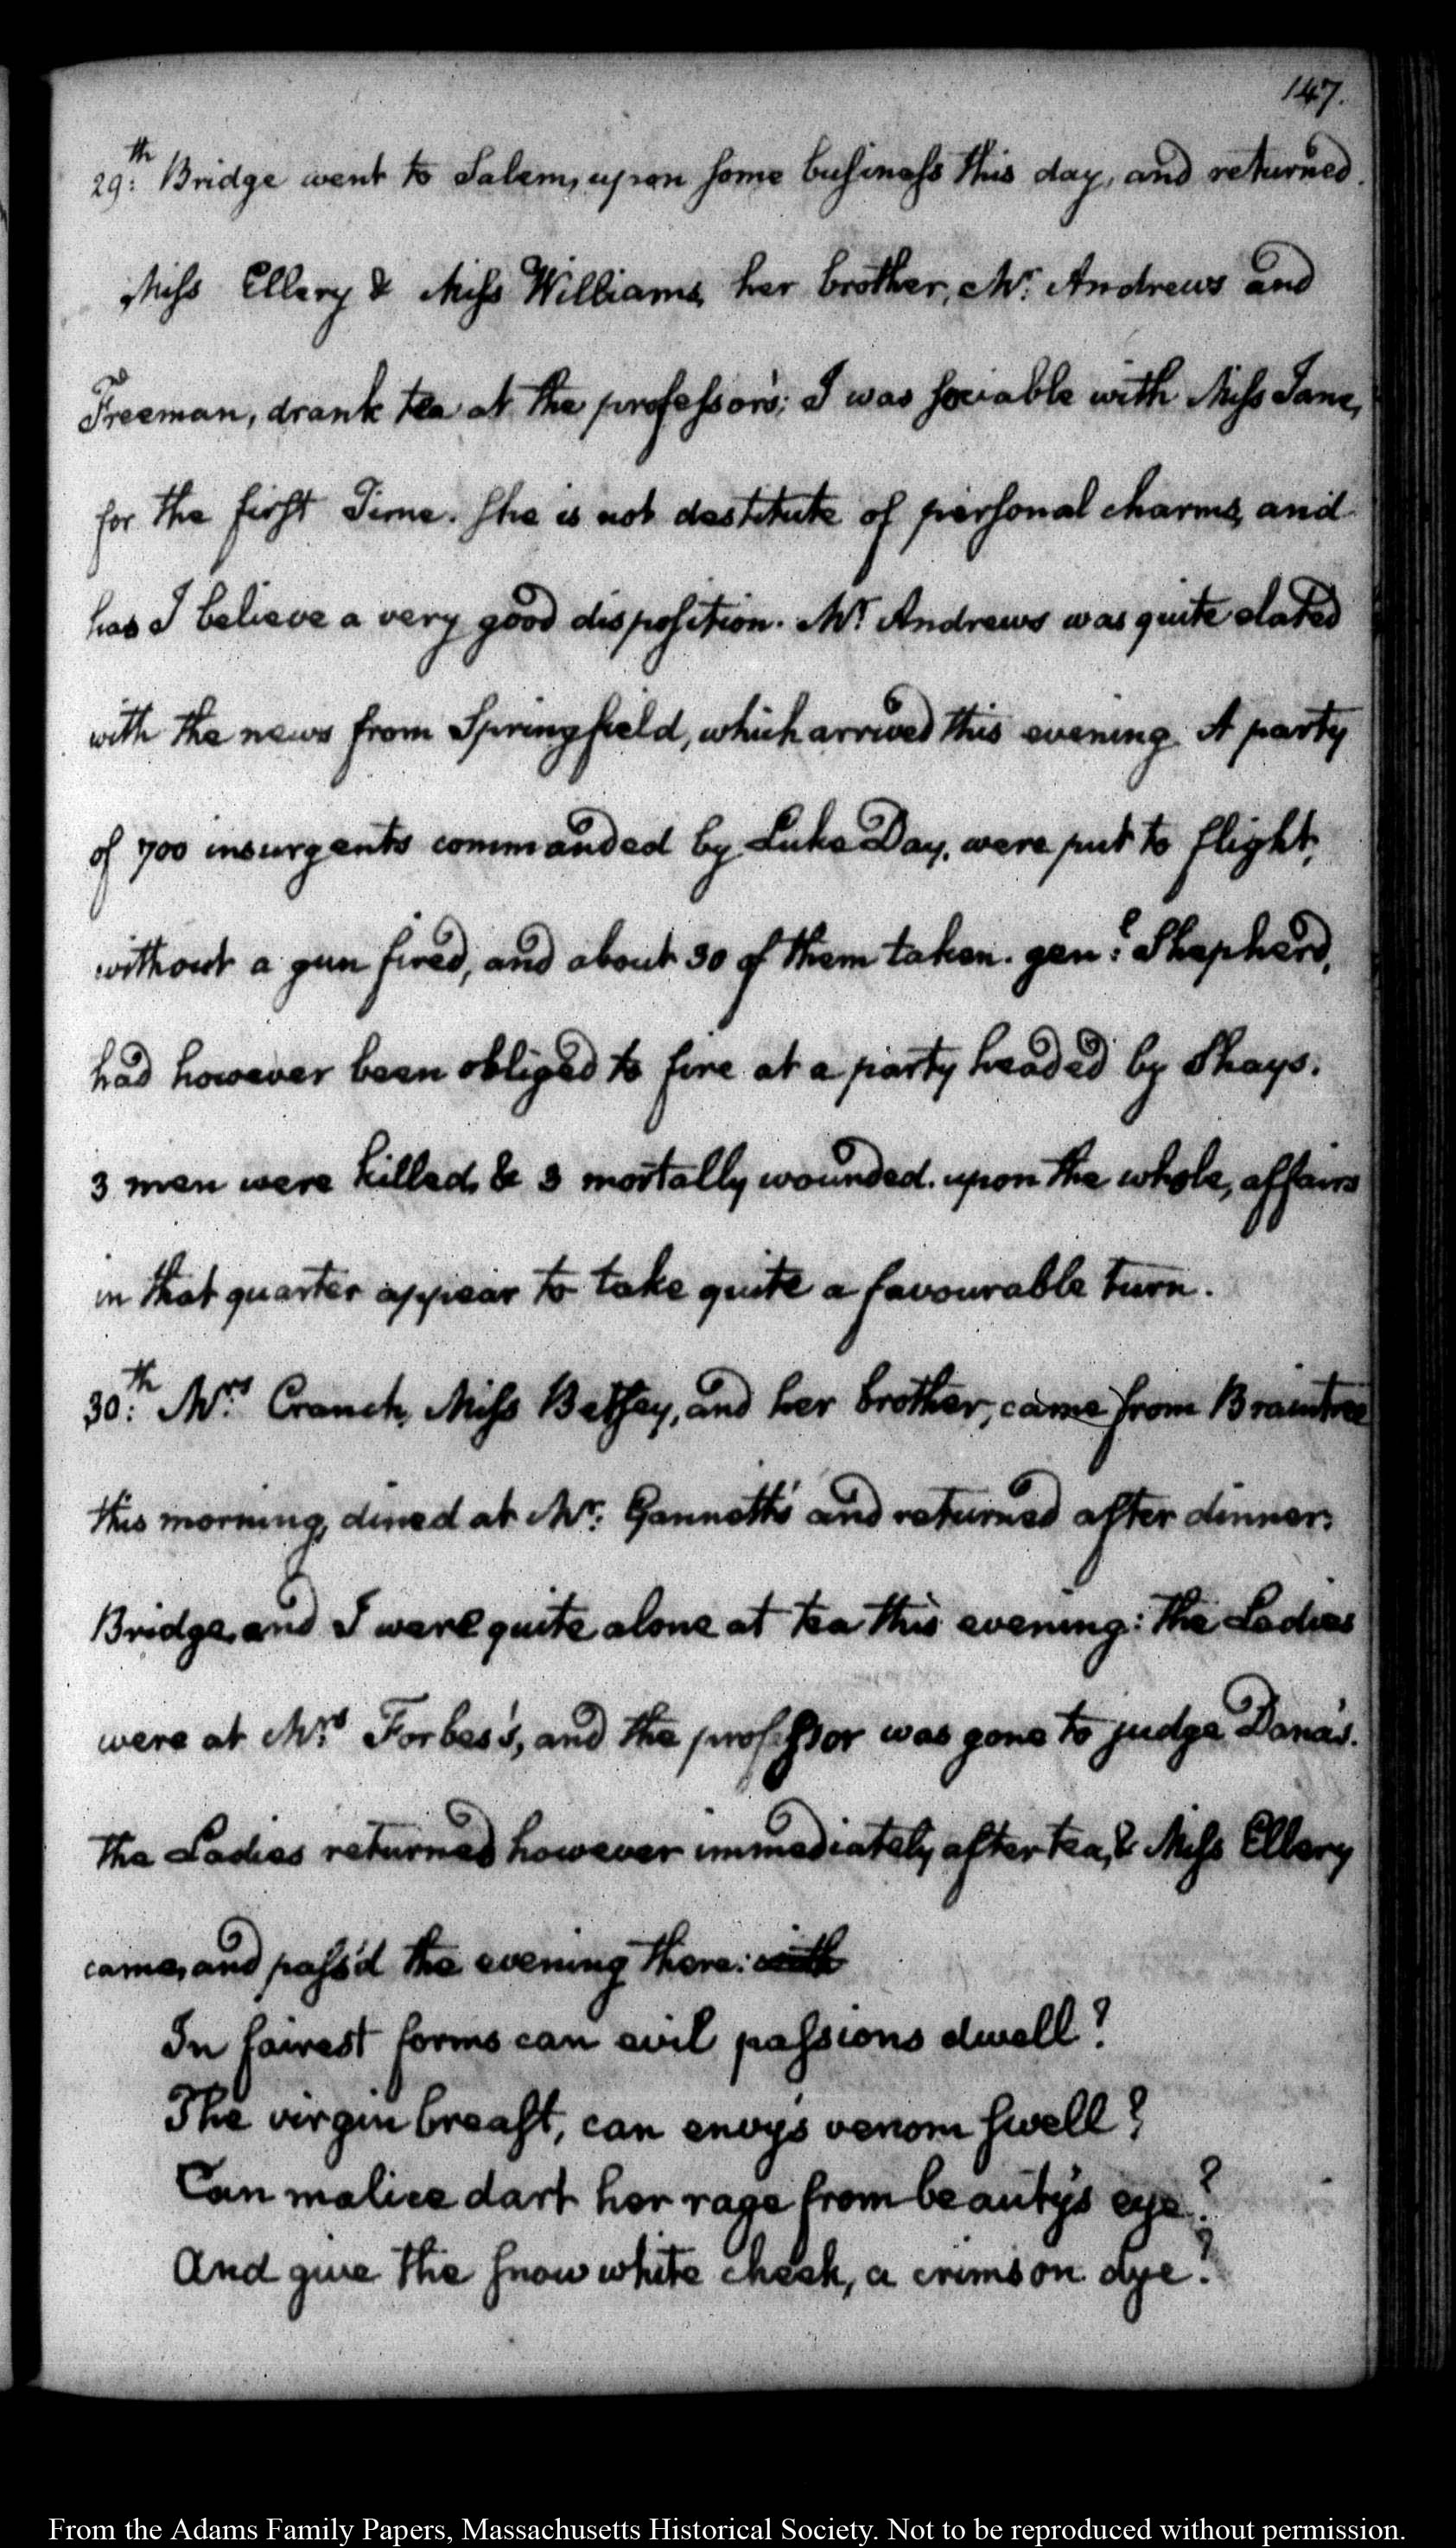 147.
29:th Bridge went to Salem, upon some business this day, and returned.
Miss Ellery & Miss Williams, her brother, Mr: Andrews and
Freeman, drank tea at the professor's; I was sociable with Miss Jane,
for the first Time. She is not destitute of personal charms, and
has I believe a very good disposition. Mr: Andrews was quite elated
with the news from Springfield, which arrived this evening. A party
of 700 insurgents commanded by Luke Day, were put to flight,
without a gun fired, and about 30 of them taken. gen:l Shepherd,
had however been obliged to fire at a party headed by Shays.
3 men were killed, & 3 mortally wounded. upon the whole, affairs
in that quarter appear to take quite a favourable turn.
30:th Mrs: Cranch, Miss Betsey, and her brother, came from Braintree
this morning, dined at Mr: Gannett's and returned after dinner:
Bridge, and I were quite alone at tea this evening: the Ladies
were at Mrs: Forbes's, and the professor was gone to judge Dana's.
the Ladies returned however immediately after tea, & Miss Ellery
came, and pass'd the evening there: with
In fairest forms can evil passions dwell?
The virgin breast, can envy's venom swell?
Can malice dart her rage from beauty's eye?
And give the snow white cheek, a crimson dye?
From the Adams Family Papers, Massachusetts Historical Society. Not to be reproduced without permission.